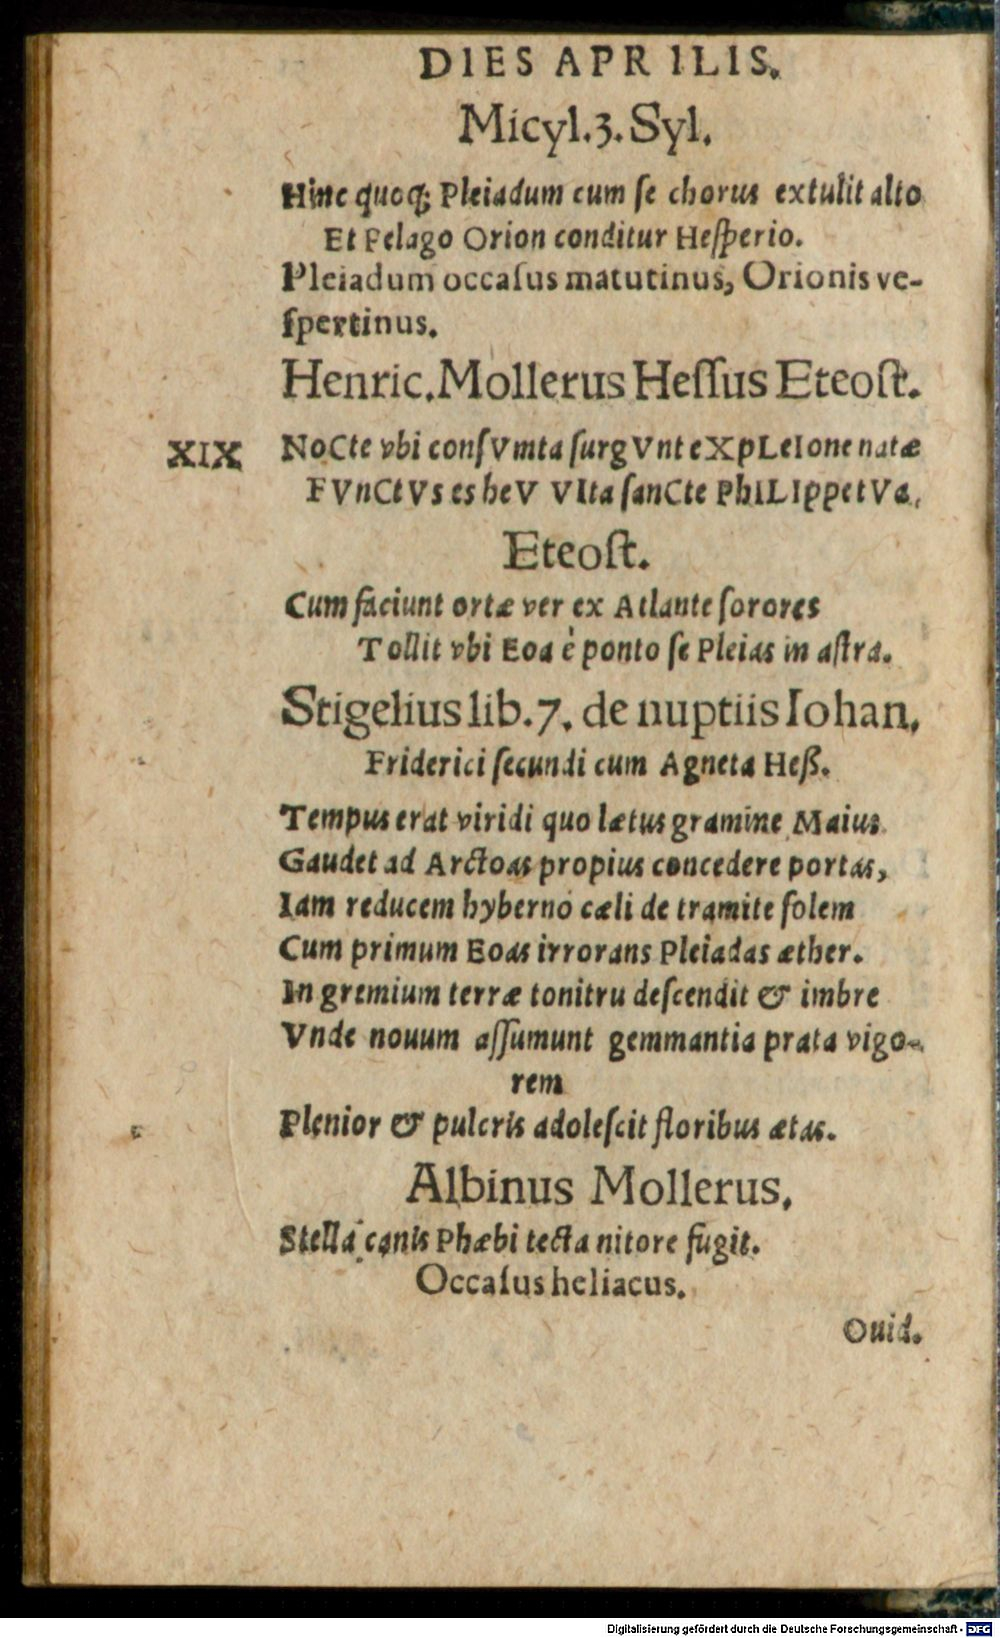 DIES APRILIS.
Micyl.3.Syl.
Hinc quoq; Pleiadum cum ſe chorus extulit alto
Et Pelago Orion conditur Heſperio.
Pleiadum occaſus matutinus, Orionis ve-
ſpertinus.
Henric. Mollerus Heſſus Eteoſt.
XIX NoCte vbi conſVmta ſurgVnt eXpLeIone natæ
FVnCtVs es heV VIta ſanCte PhILIppe tVa.
Eteoſt.
Cum faciunt ortæ ver ex Atlante ſorores
Tollit vbi Eoa è ponto ſe Pleias in aſtra.
Stigelius lib.7. de nuptiis Iohan.
Friderici ſecundi cum Agneta Heß.
Tempus erat viridi quo lætus gramine Maius
Gaudet ad Arctoas propius concedere portas,
Iam reducem hyberno cæli de tramite ſolem
Cum primum Eoas irrorans Pleiadas æther.
In gremium terræ tonitru deſcendit & imbre
Vnde nouum aſſumunt gemmantia prata vigo-
rem
Plenior & pulcris adoleſcit floribus ætas.
Albinus Mollerus.
Stella canis Phæbi tecta nitore fugit.
Occaſus heliacus.
Ouid.
Digitalisierung gefördert durch die Deutsche Forschungsgemeinschaft - DFG